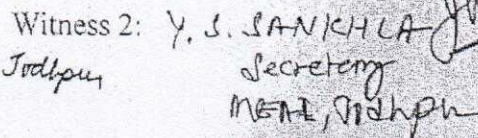 Witness 2: Y. S. SANKHLA
Jodhpur Secretary
MEAI, Jodhpur